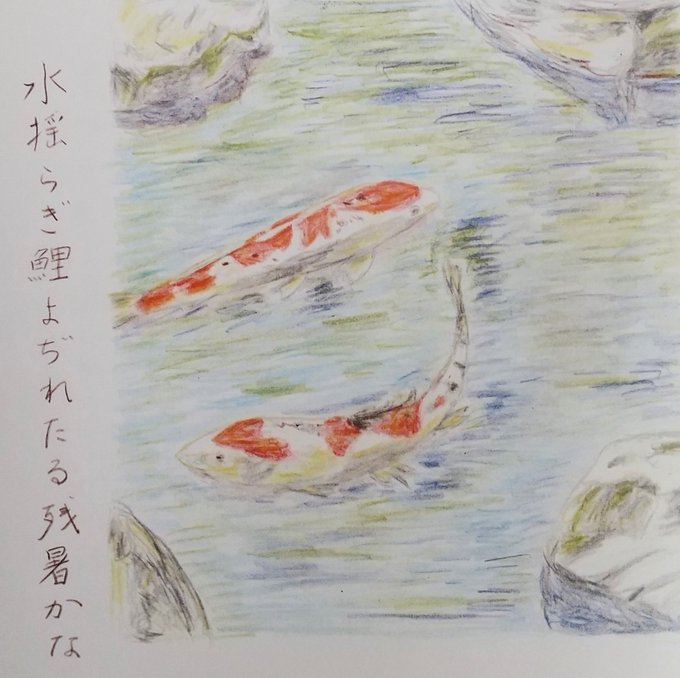 水揺らぎ鯉よぢれたる残暑かな